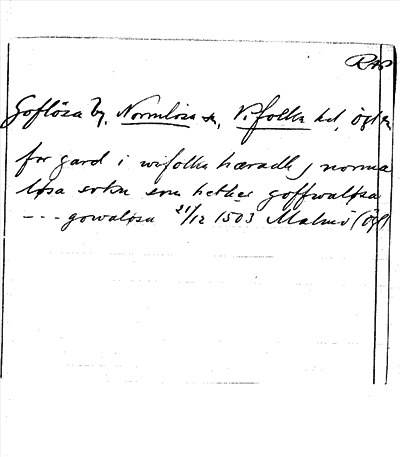 RAP
Goflösa by, Normlösa sn, Vifolka hd, Ögtn
for gard i wifolka hæradh j norma
løsa sokn som hether goffwaløsa
--- gowaløsa 21/12 1503 Malmö (Ögl)